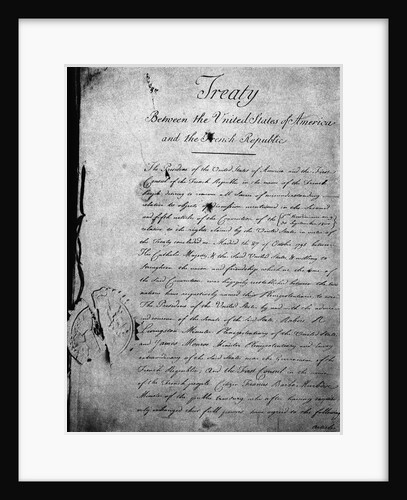 Treaty
Between the United States of America
and the French Republic
The President of the United States of America and the First
Consul of the French Republic in the name of the French
People desiring to remove all Source of misunderstanding
relative to objects of discussion mentioned in the Second
and fifth articles of the Convention of the
relative to the rights claimed by the United States in virtue of
the Treaty concluded at Madrid the 27 of October 1795 between
His Catholic Majesty, & the Said United States, & willing to
Strengthen the union and friendship which at the time of
the Said Convention was happily reestablished between the two
nations have respectively named their Plenipotentiaries to wit
The President of the United States, by and with the advice
and consent of the Senate of the Said States Robert R.
Livingston Minister Plenipotentiary of the United States
and James Monroe Minister Plenipotentiary and Envoy
extraordinary of the Said States near the Government of the
French Republic; And the First Consul in the name
of the French people Citizen Francis Barbé Marbois
Minister of the public treasury who after having respectively
exchanged their full powers have agreed to the following
Articles